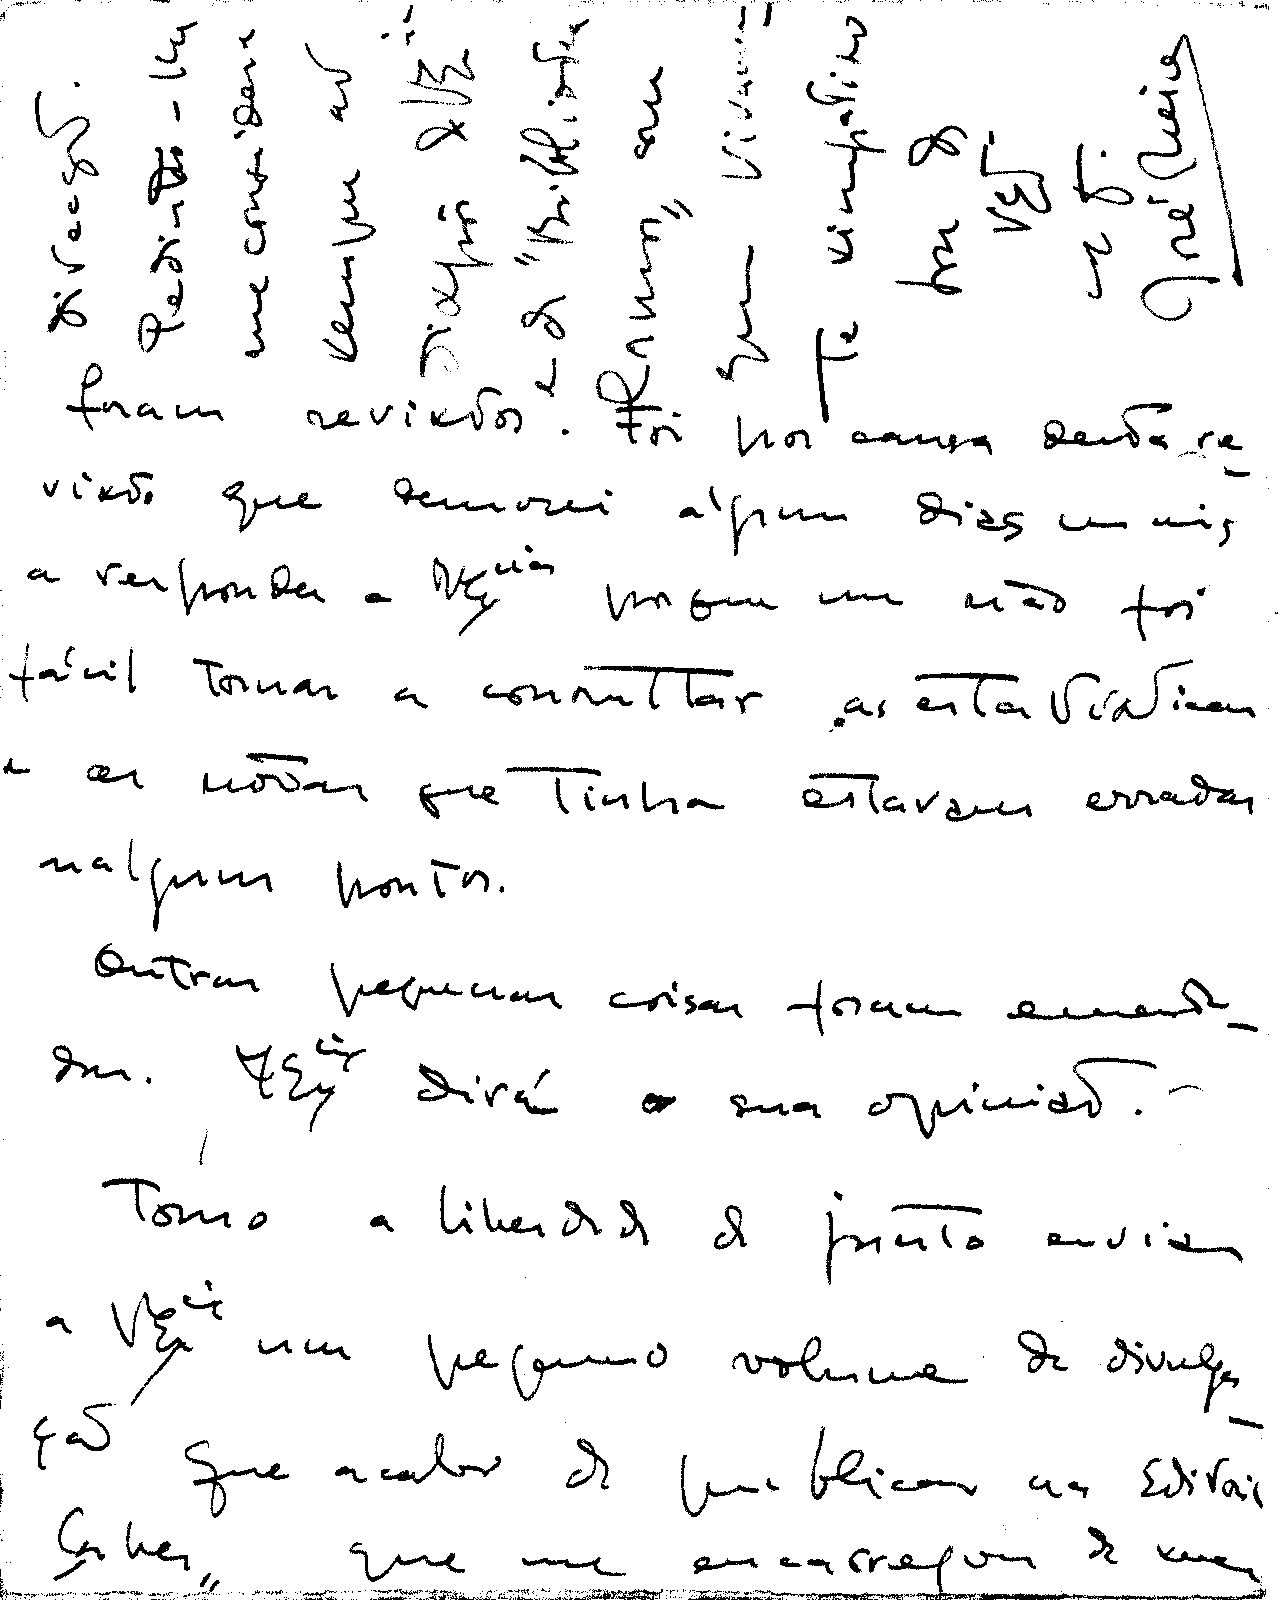 foram revistos. Foi por causa desta re-
visão que demorei alguns dias mais
a responder a V. Ex.cias porque me não foi
fácil tornar a consultar as estatísticas
e as notas que tinha estavam erradas
nalguns pontos.
Outras pequenas coisas foram emenda-
das. V. Ex.cia dirá a sua opinião.
Tomo a liberdade de junto enviar
a V. Ex.cia um pequeno volume de divulga-
ção que acabo de publicar na Editorial
que me encarregou de
direcção.
Pedindo-lhe
me considere
sempre ao
dispor de V. Ex.
e da "Biblioteca
Ramos" sou
que vivamen
te